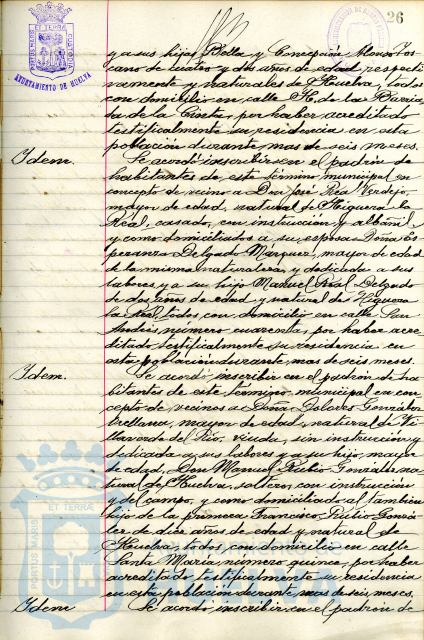 26
AYUNTAMIENTO DE HUELVA
y a sus hijas Bella y Concepción Alonso
cano de cuatro y dos años de edad respecti-
vamente y naturales de Huelva, todos
con domicilio en calle H. de la Barria-
da de la Cinta, por haber acreditado
testificalmente su residencia en esta
población durante mas de seis meses.
Idem. Se acordó inscribir en el padrón de
habitantes de este término municipal en
concepto de vecino a Don José Rea Verdejo,
mayor de edad, natural de Higuera la
Real, casado, con instrucción y albañil
y como domiciliados a su esposa Doña Es-
peranza Delgado Márquez, mayor de edad
de la misma naturaleza y dedicada a sus
labores y a su hijo Manuel Real Delgado
de dos años de edad y natural de Higuera
la Real, todos con domicilio en calle San
Andrés, número cuarenta, por haber acre-
ditado testificalmente su residencia en
esta población durante mas de seis meses.
Idem. Se acordó inscribir en el padrón de ha-
bitantes de este término municipal en con-
cepto de vecinos a Doña Dolores González
Orellana, mayor de edad, natural de Vi-
llaverde del Rio, viuda, sin instrucción y
dedicada a sus labores y a su hijo, mayor
de edad, Don Manuel Rubio González, na-
tural de Huelva, soltero, con instrucción
y del campo, y como domiciliado al tambien
hijo de la primera Francisco Rubio Gonzá-
lez de diez años de edad y natural de
Huelva, todos con domicilio en calle
Santa María, número quince, por haber
acreditado testificalmente su residencia
en esta población durante mas de seis meses.
Idem Se acordó inscribir en el padrón de
PORTUS MARIS
ET TERRÆ